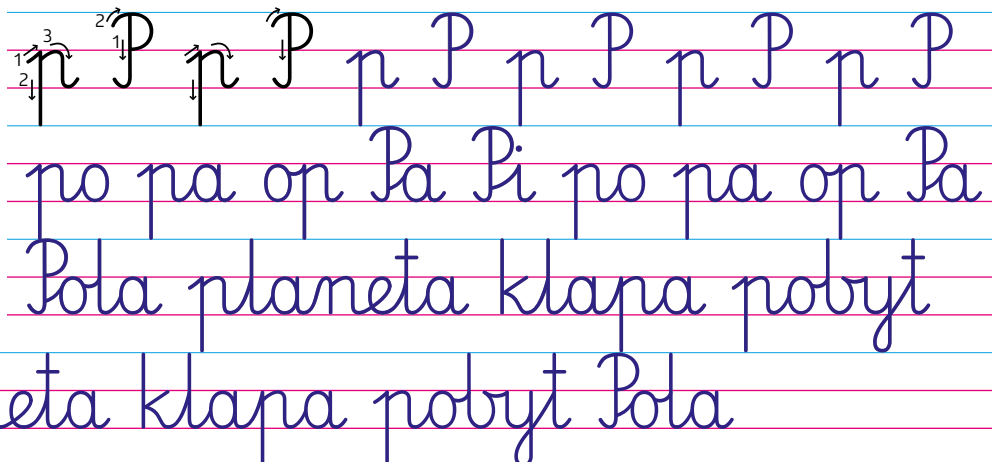 p P p P p P p P p P p P
po pa op Pa Pi po pa op Pa
Pola planeta klapa pobyt
eta klapa pobyt Pola